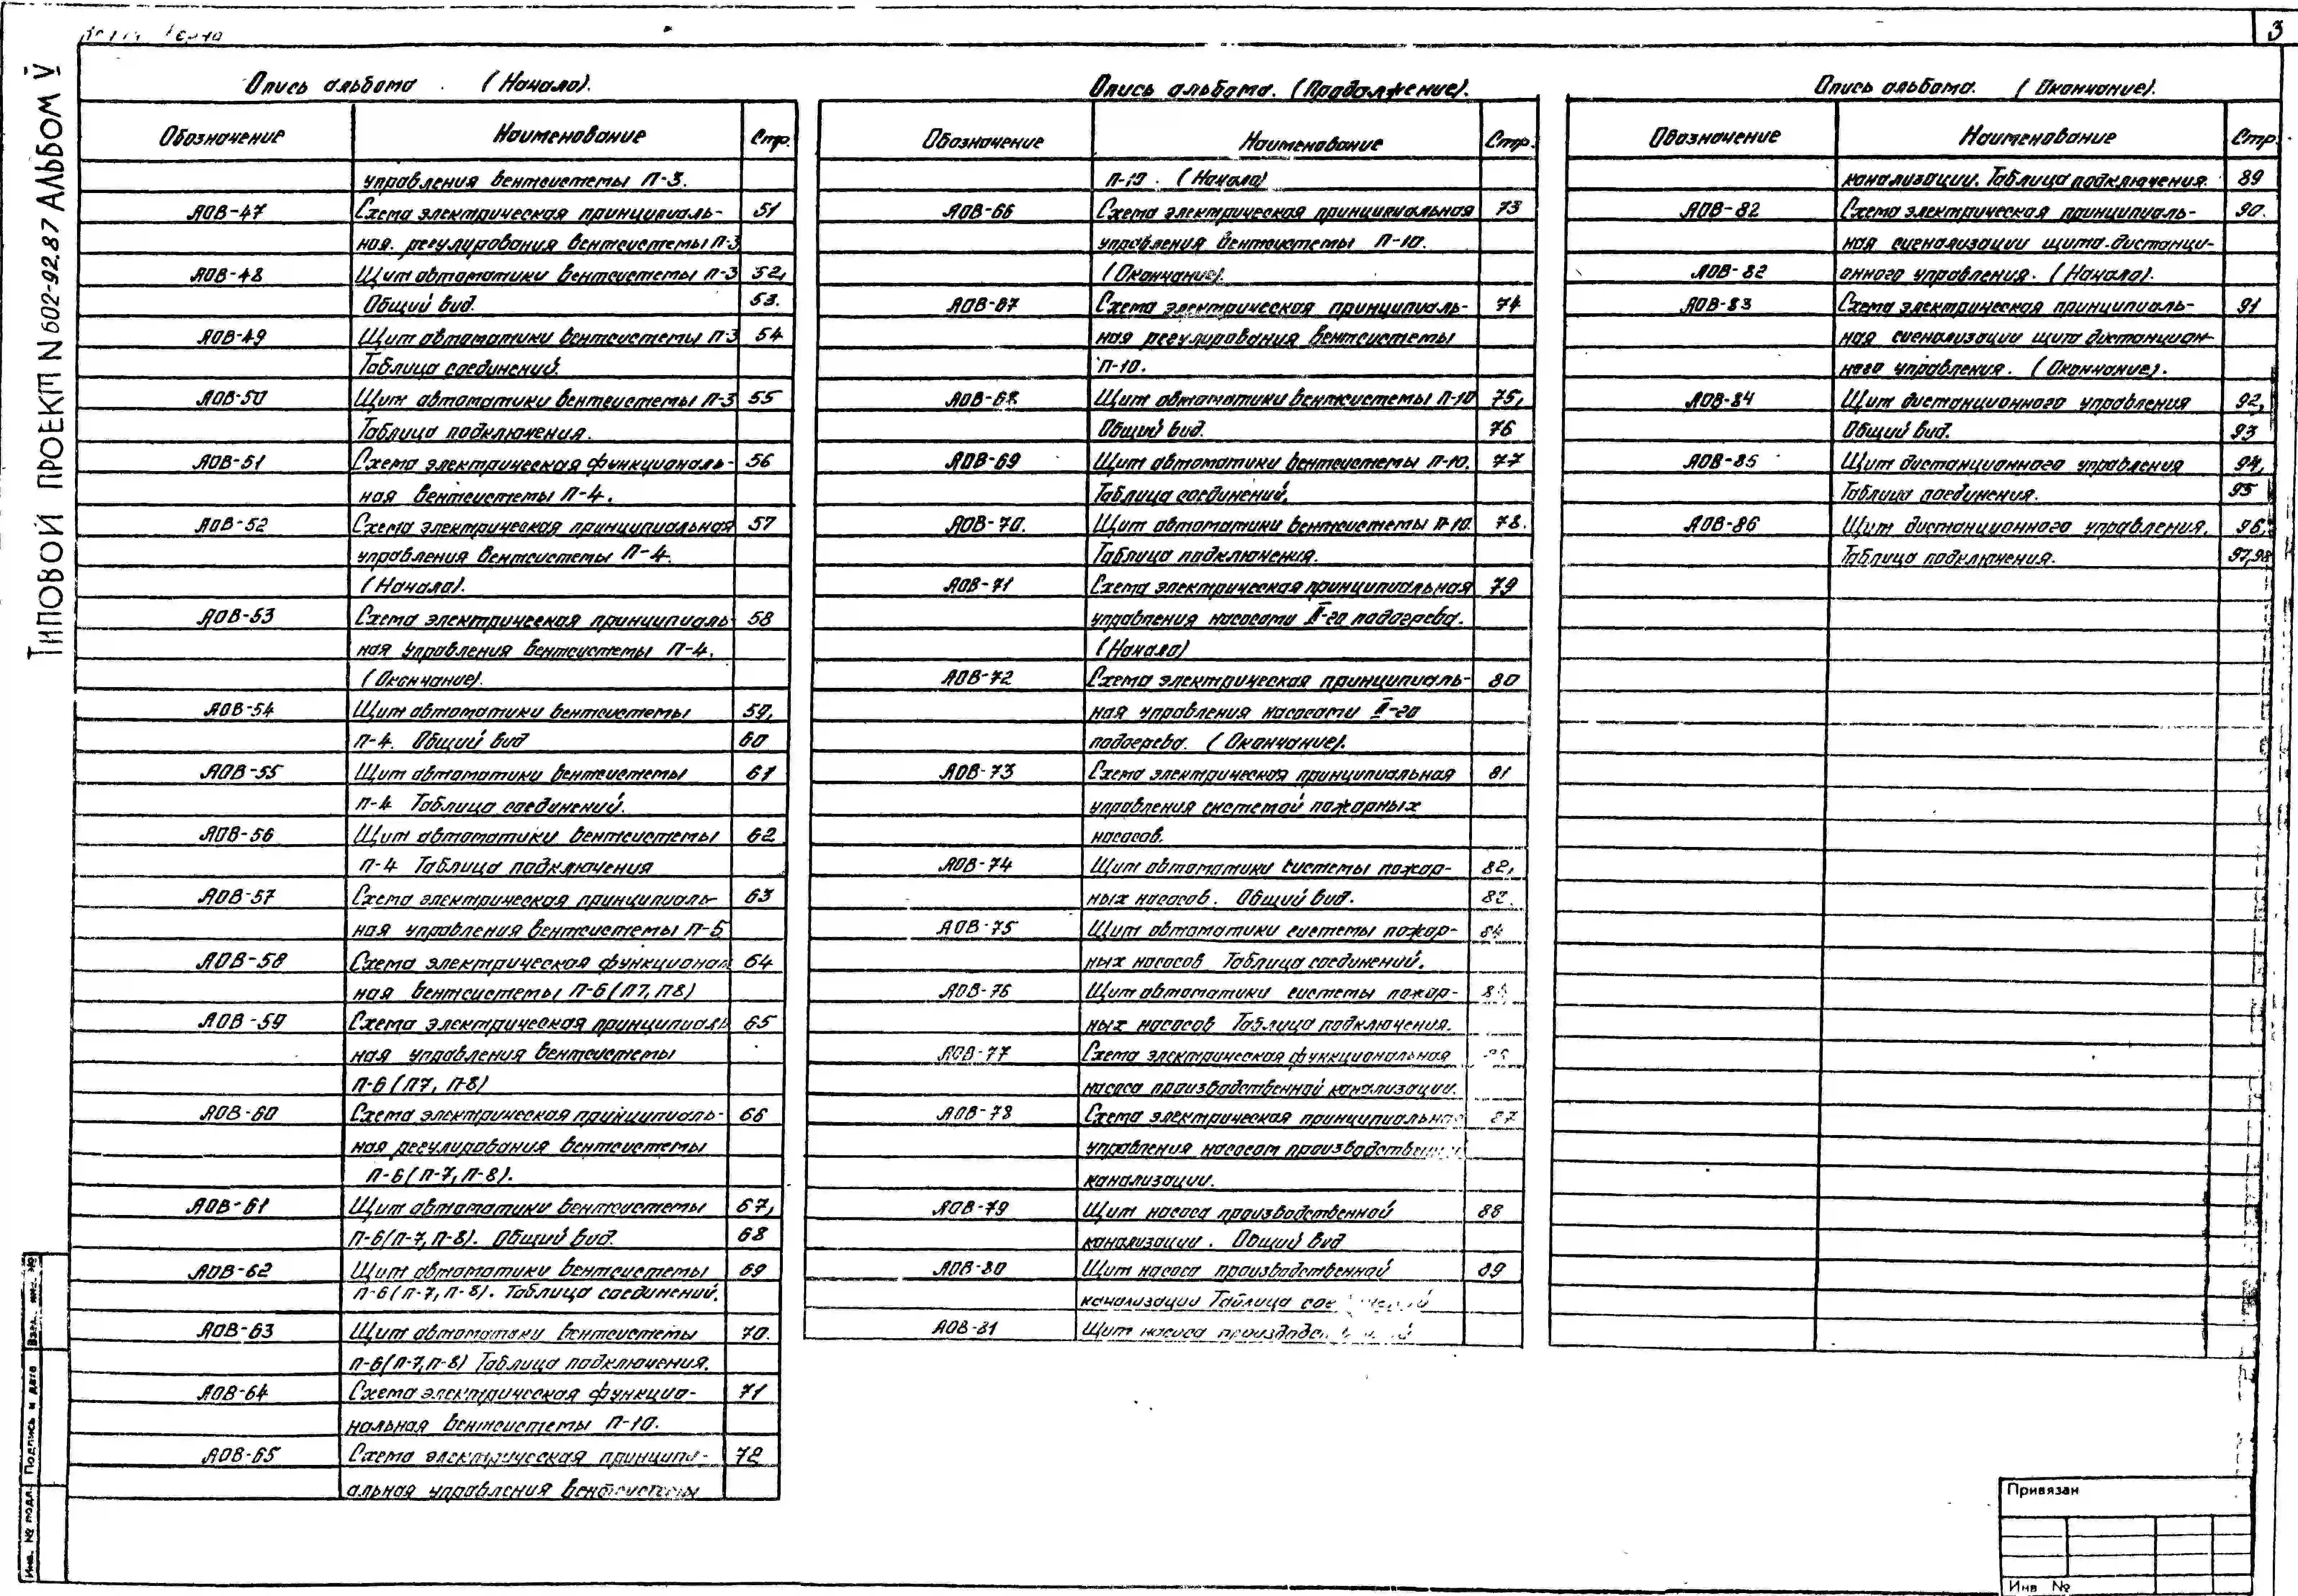 3
ТИПОВОЙ ПРОЕКТ N 602-92.87 АЛЬБОМ V
Опись альбома (Начало).
Обозначение Наименование Стр.
управления вентсистемы П-3.
АОВ-47 Схема электрическая принципиаль- 51
ная. регулирования вентсистемы П-3
АОВ-48 Щит автоматики вентсистемы П-3 52,
Общий вид. 53.
АОВ-49 Щит автоматики вентсистемы П-3 54
Таблица соединений.
АОВ-50 Щит автоматики вентсистемы П-3 55
Таблица подключения.
АОВ-51 Схема электрическая функциональ- 56
ная вентсистемы П-4.
АОВ-52 Схема электрическая принципиальная 57
управления вентсистемы П-4.
(Начало).
АОВ-53 Схема электрическая принципиаль- 58
ная управления вентсистемы П-4.
(Окончание).
АОВ-54 Щит автоматики вентсистемы 59,
П-4. Общий вид 60
АОВ-55 Щит автоматики вентсистемы 61
П-4 Таблица соединений.
АОВ-56 Щит автоматики вентсистемы 62
П-4 Таблица подключения
АОВ-57 Схема электрическая принципиаль- 63
ная управления вентсистемы П-5
АОВ-58 Схема электрическая функционал 64
ная вентсистемы П-6 (П7, П8)
АОВ-59 Схема электрическая принципиаль 65
ная управления вентсистемы
П-6 (П7, П-8)
АОВ-60 Схема электрическая принципиаль- 66
ная регулирования вентсистемы
П-6 (П-7, П-8).
АОВ-61 Щит автоматики вентсистемы 67,
П-6 (П-7, П-8). Общий вид. 68
АОВ-62 Щит автоматики вентсистемы 69
П-6 (П-7, П-8). Таблица соединений.
АОВ-63 Щит автоматики вентсистемы 70.
П-6 (П-7, П-8) Таблица подключения.
АОВ-64 Схема электрическая функцио- 71
нальная вентсистемы П-10.
АОВ-65 Схема электрическая принципи- 72
альная управления вентсистемы
Опись альбома. (Продолжение).
Обозначение Наименование Стр.
П-10. (Начало)
АОВ-66 Схема электрическая принципиальная 73
управления вентсистемы П-10.
(Окончание).
АОВ-67 Схема электрическая принципиаль- 74
ная регулирования вентсистемы
П-10.
АОВ-68 Щит автоматики вентсистемы П-10 75,
Общий вид. 76
АОВ-69 Щит автоматики вентсистемы П-10. 77
Таблица соединений.
АОВ-70. Щит автоматики вентсистемы П-10. 78.
Таблица подключения.
АОВ-71 Схема электрическая принципиальная 79
управления насосами II-го подогрева.
(Начало)
АОВ-72 Схема электрическая принципиаль- 80
ная управления насосами II-го
подогрева. (Окончание).
АОВ-73 Схема электрическая принципиальная 81
управления системой пожарных
насосов.
АОВ-74 Щит автоматики системы пожар- 82,
ных насосов. Общий вид. 83.
АОВ-75 Щит автоматики системы пожар- 84
ных насосов Таблица соединений.
АОВ-76 Щит автоматики системы пожар-
ных насосов Таблица подключения.
АОВ-77 Схема электрическая функциональная
насоса производственной канализации.
АОВ-78 Схема электрическая принципиальная 87
управления насосом производственной
канализации.
АОВ-79 Щит насоса производственной 88
канализации. Общий вид
АОВ-80 Щит насоса производственной 89
канализации Таблица соединений
АОВ-81 Щит насоса производственной
Опись альбома. (Окончание).
Обозначение Наименование Стр.
канализации. Таблица подключения. 89
АОВ-82 Схема электрическая принципиаль- 90.
ная сигнализации щита дистанци-
АОВ-82 онного управления. (Начало).
АОВ-83 Схема электрическая принципиаль- 91
ная сигнализации щита дистанцион-
ного управления. (Окончание).
АОВ-84 Щит дистанционного управления 92,
Общий вид. 93
АОВ-85 Щит дистанционного управления 94,
Таблица соединения. 95
АОВ-86 Щит дистанционного управления. 96,
Таблица подключения. 97,98
Инв. № подл. Подпись и дата Взам. инв. №
Привязан
Инв №